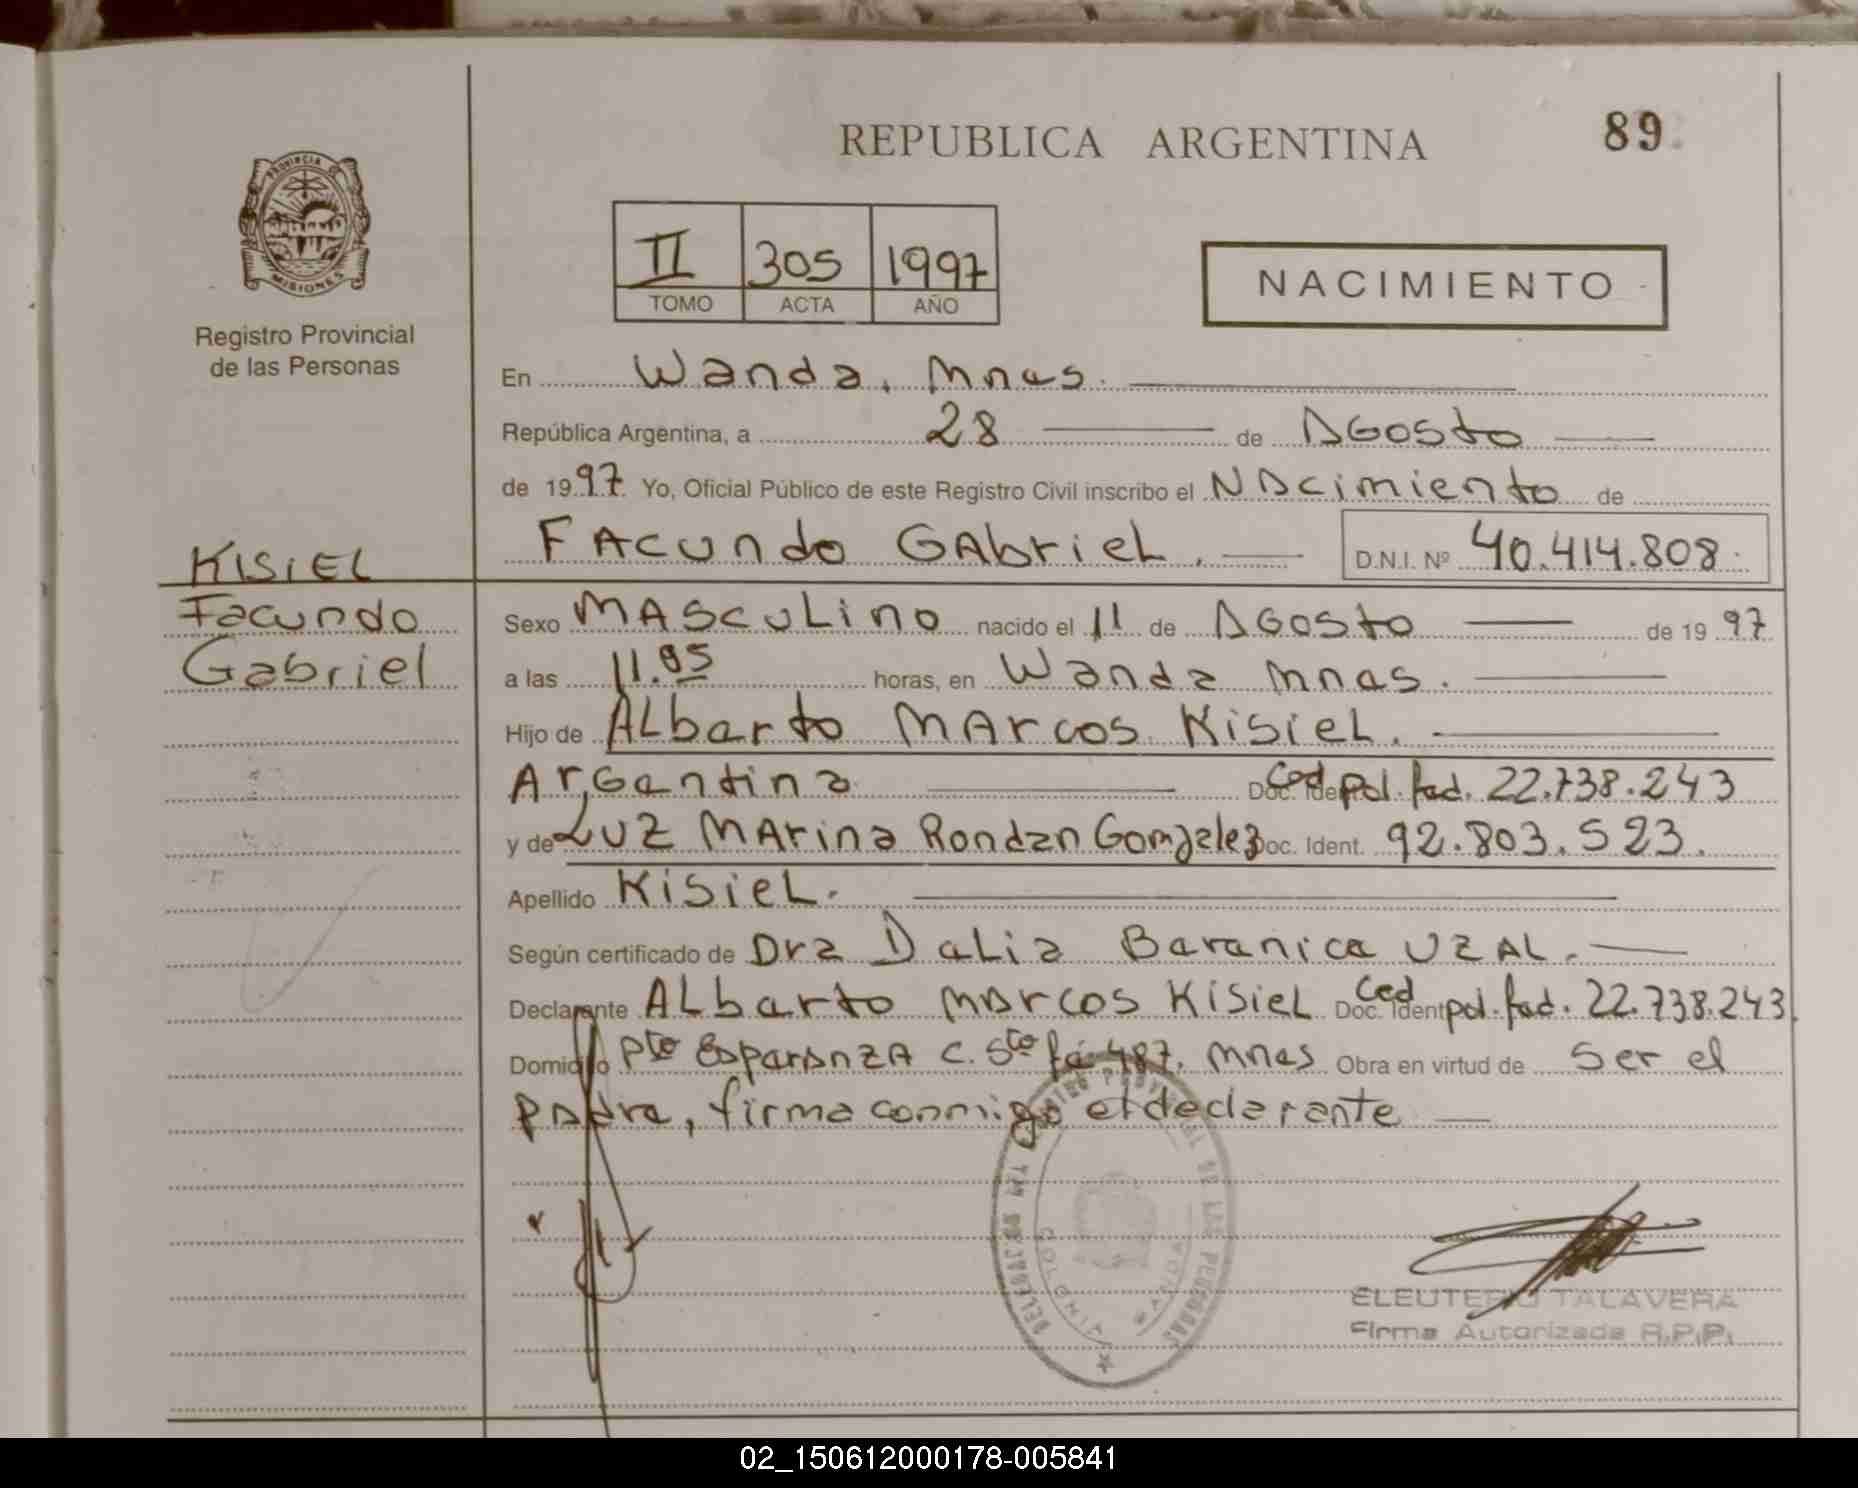 REPUBLICA ARGENTINA
89
PROVINCIA DE
MISIONES
Registro Provincial
de las Personas
II 305 1997
TOMO ACTA AÑO
NACIMIENTO
En Wanda, Mnes.
República Argentina, a 28 de Agosto
de 1997 Yo, Oficial Público de este Registro Civil inscribo el Nacimiento de
Facundo Gabriel. D.N.I. Nº 40.414.808
KISIEL
Facundo
Gabriel
Sexo Masculino nacido el 11 de Agosto de 1997
a las 11.05 horas, en Wanda Mnes.
Hijo de Alberto Marcos Kisiel.
Argentina Doc. Ident. Ced pol. fed. 22.738.243
y de Luz Marina Rondan Gomzalez Doc. Ident. 92.803.523.
Apellido Kisiel.
Según certificado de Dra Dalia Beranice UZAL.
Declarante Alberto Marcos Kisiel Doc. Ident. Ced pol. fed. 22.738.243
Domicilio Pto Esperanza c. Sta fé 487. Mnes Obra en virtud de ser el
padre, firma conmigo el declarante
COLONIA WANDA
ELEUTERIO TALAVERA
Firma Autorizada R.P.P.
02_150612000178-005841